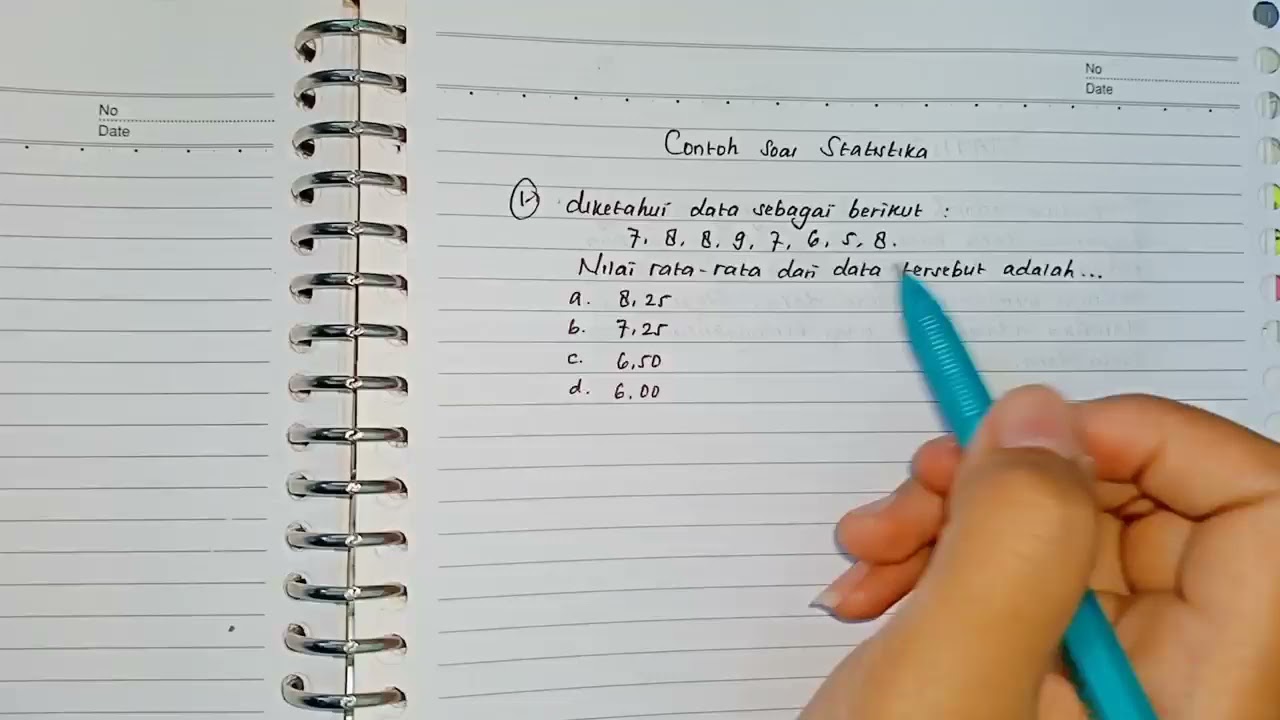 No
Date
No
Date
Contoh soal Statistika
1. diketahui data sebagai berikut :
7, 8, 8, 9, 7, 6, 5, 8.
Nilai rata-rata dari data tersebut adalah...
a. 8,25
b. 7,25
c. 6,50
d. 6,00